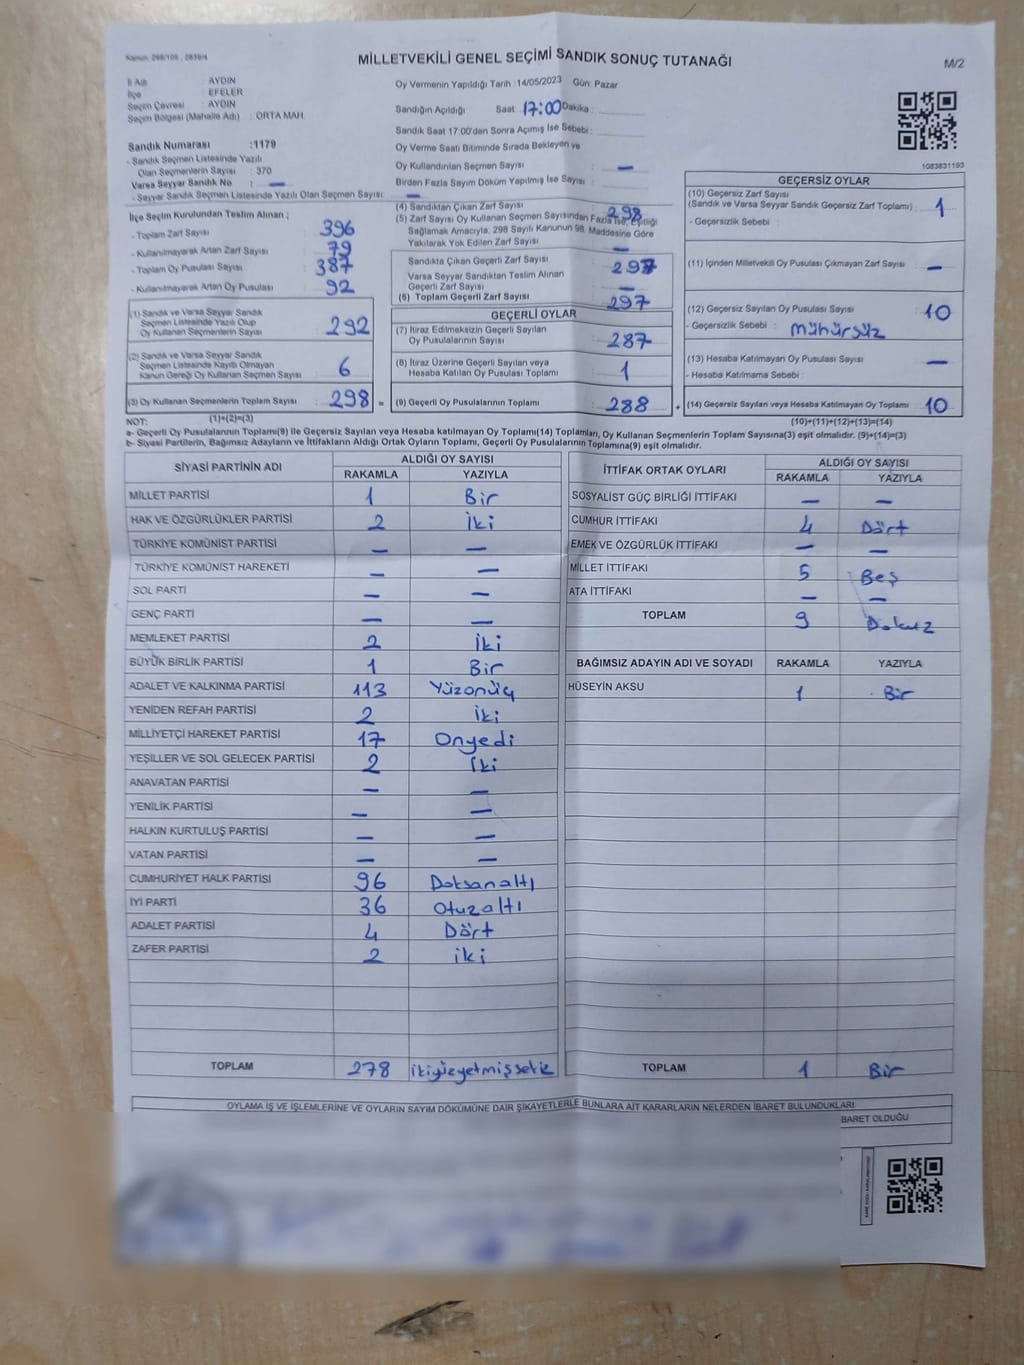 Kanun: 298/105 , 2839/4
MİLLETVEKİLİ GENEL SEÇİMİ SANDIK SONUÇ TUTANAĞI
M/2
İl Adı : AYDIN
İlçe : EFELER
Seçim Çevresi : AYDIN
Seçim Bölgesi (Mahalle Adı) : ORTA MAH.
Oy Vermenin Yapıldığı Tarih :14/05/2023 Gün: Pazar
Sandığın Açıldığı Saat 17:00 Dakika :
Sandık Saat 17:00'dan Sonra Açımış İse Sebebi :
Oy Verme Saati Bitiminde Sırada Bekleyen ve
Oy Kullandırılan Seçmen Sayısı : —
Birden Fazla Sayım Döküm Yapılmış İse Sayısı :
1083831193
Sandık Numarası :1179
- Sandık Seçmen Listesinde Yazılı
Olan Seçmenlerin Sayısı : 370
Varsa Seyyar Sandık No : —
- Seyyar Sandık Seçmen Listesinde Yazılı Olan Seçmen Sayısı : —
İlçe Seçim Kurulundan Teslim Alınan ;
- Toplam Zarf Sayısı : 396
- Kullanılmayarak Artan Zarf Sayısı : 79
- Toplam Oy Pusulası Sayısı : 387
- Kullanılmayarak Artan Oy Pusulası : 92
(1) Sandık ve Varsa Seyyar Sandık
Seçmen Listesinde Yazılı Olup
Oy Kullanan Seçmenlerin Sayısı : 292
(2) Sandık ve Varsa Seyyar Sandık
Seçmen Listesinde Kayıtlı Olmayan
Kanun Gereği Oy Kullanan Seçmen Sayısı : 6
(3) Oy Kullanan Seçmenlerin Toplam Sayısı : 298 =
(4) Sandıktan Çıkan Zarf Sayısı : 298
(5) Zarf Sayısı Oy Kullanan Seçmen Sayısından Fazla İse, Eşitliği
Sağlamak Amacıyla, 298 Sayılı Kanunun 98. Maddesine Göre
Yakılarak Yok Edilen Zarf Sayısı : —
Sandıkta Çıkan Geçerli Zarf Sayısı : 297
Varsa Seyyar Sandıktan Teslim Alınan
Geçerli Zarf Sayısı : —
(6) Toplam Geçerli Zarf Sayısı : 297
GEÇERLİ OYLAR
(7) İtiraz Edilmeksizin Geçerli Sayılan
Oy Pusulalarının Sayısı : 287
(8) İtiraz Üzerine Geçerli Sayılan veya
Hesaba Katılan Oy Pusulası Toplamı : 1
(9) Geçerli Oy Pusulalarının Toplamı : 288 +
GEÇERSİZ OYLAR
(10) Geçersiz Zarf Sayısı
(Sandık ve Varsa Seyyar Sandık Geçersiz Zarf Toplamı) : 1
- Geçersizlik Sebebi :
(11) İçinden Milletvekili Oy Pusulası Çıkmayan Zarf Sayısı : —
(12) Geçersiz Sayılan Oy Pusulası Sayısı : 10
- Geçersizlik Sebebi : mühürsüz
(13) Hesaba Katılmayan Oy Pusulası Sayısı : —
- Hesaba Katılmama Sebebi :
(14) Geçersiz Sayılan veya Hesaba Katılmayan Oy Toplamı : 10
NOT: (1)+(2)=(3) (10)+(11)+(12)+(13)=(14)
a- Geçerli Oy Pusulalarının Toplamı(9) ile Geçersiz Sayılan veya Hesaba katılmayan Oy Toplamı(14) Toplamları, Oy Kullanan Seçmenlerin Toplam Sayısına(3) eşit olmalıdır. (9)+(14)=(3)
b- Siyasi Partilerin, Bağımsız Adayların ve İttifakların Aldığı Ortak Oyların Toplamı, Geçerli Oy Pusulalarının Toplamına(9) eşit olmalıdır.
SİYASİ PARTİNİN ADI ALDIĞI OY SAYISI
RAKAMLA YAZIYLA
MİLLET PARTİSİ 1 Bir
HAK VE ÖZGÜRLÜKLER PARTİSİ 2 İki
TÜRKİYE KOMÜNİST PARTİSİ — —
TÜRKİYE KOMÜNİST HAREKETİ — —
SOL PARTİ — —
GENÇ PARTİ — —
MEMLEKET PARTİSİ 2 İki
BÜYÜK BİRLİK PARTİSİ 1 Bir
ADALET VE KALKINMA PARTİSİ 113 Yüzonüç
YENİDEN REFAH PARTİSİ 2 iki
MİLLİYETÇİ HAREKET PARTİSİ 17 Onyedi
YEŞİLLER VE SOL GELECEK PARTİSİ 2 İki
ANAVATAN PARTİSİ — —
YENİLİK PARTİSİ — —
HALKIN KURTULUŞ PARTİSİ — —
VATAN PARTİSİ — —
CUMHURİYET HALK PARTİSİ 96 Doksanaltı
İYİ PARTİ 36 Otuzaltı
ADALET PARTİSİ 4 Dört
ZAFER PARTİSİ 2 iki
TOPLAM 278 ikiyüzyetmişsekiz
İTTİFAK ORTAK OYLARI ALDIĞI OY SAYISI
RAKAMLA YAZIYLA
SOSYALİST GÜÇ BİRLİĞİ İTTİFAKI — —
CUMHUR İTTİFAKI 4 Dört
EMEK VE ÖZGÜRLÜK İTTİFAKI — —
MİLLET İTTİFAKI 5 Beş
ATA İTTİFAKI — —
TOPLAM 9 Dokuz
BAĞIMSIZ ADAYIN ADI VE SOYADI RAKAMLA YAZIYLA
HÜSEYİN AKSU 1 Bir
TOPLAM 1 Bir
OYLAMA İŞ VE İŞLEMLERİNE VE OYLARIN SAYIM DÖKÜMÜNE DAİR ŞİKAYETLERLE BUNLARA AİT KARARLARIN NELERDEN İBARET BULUNDUKLARI
BARET OLDUĞU